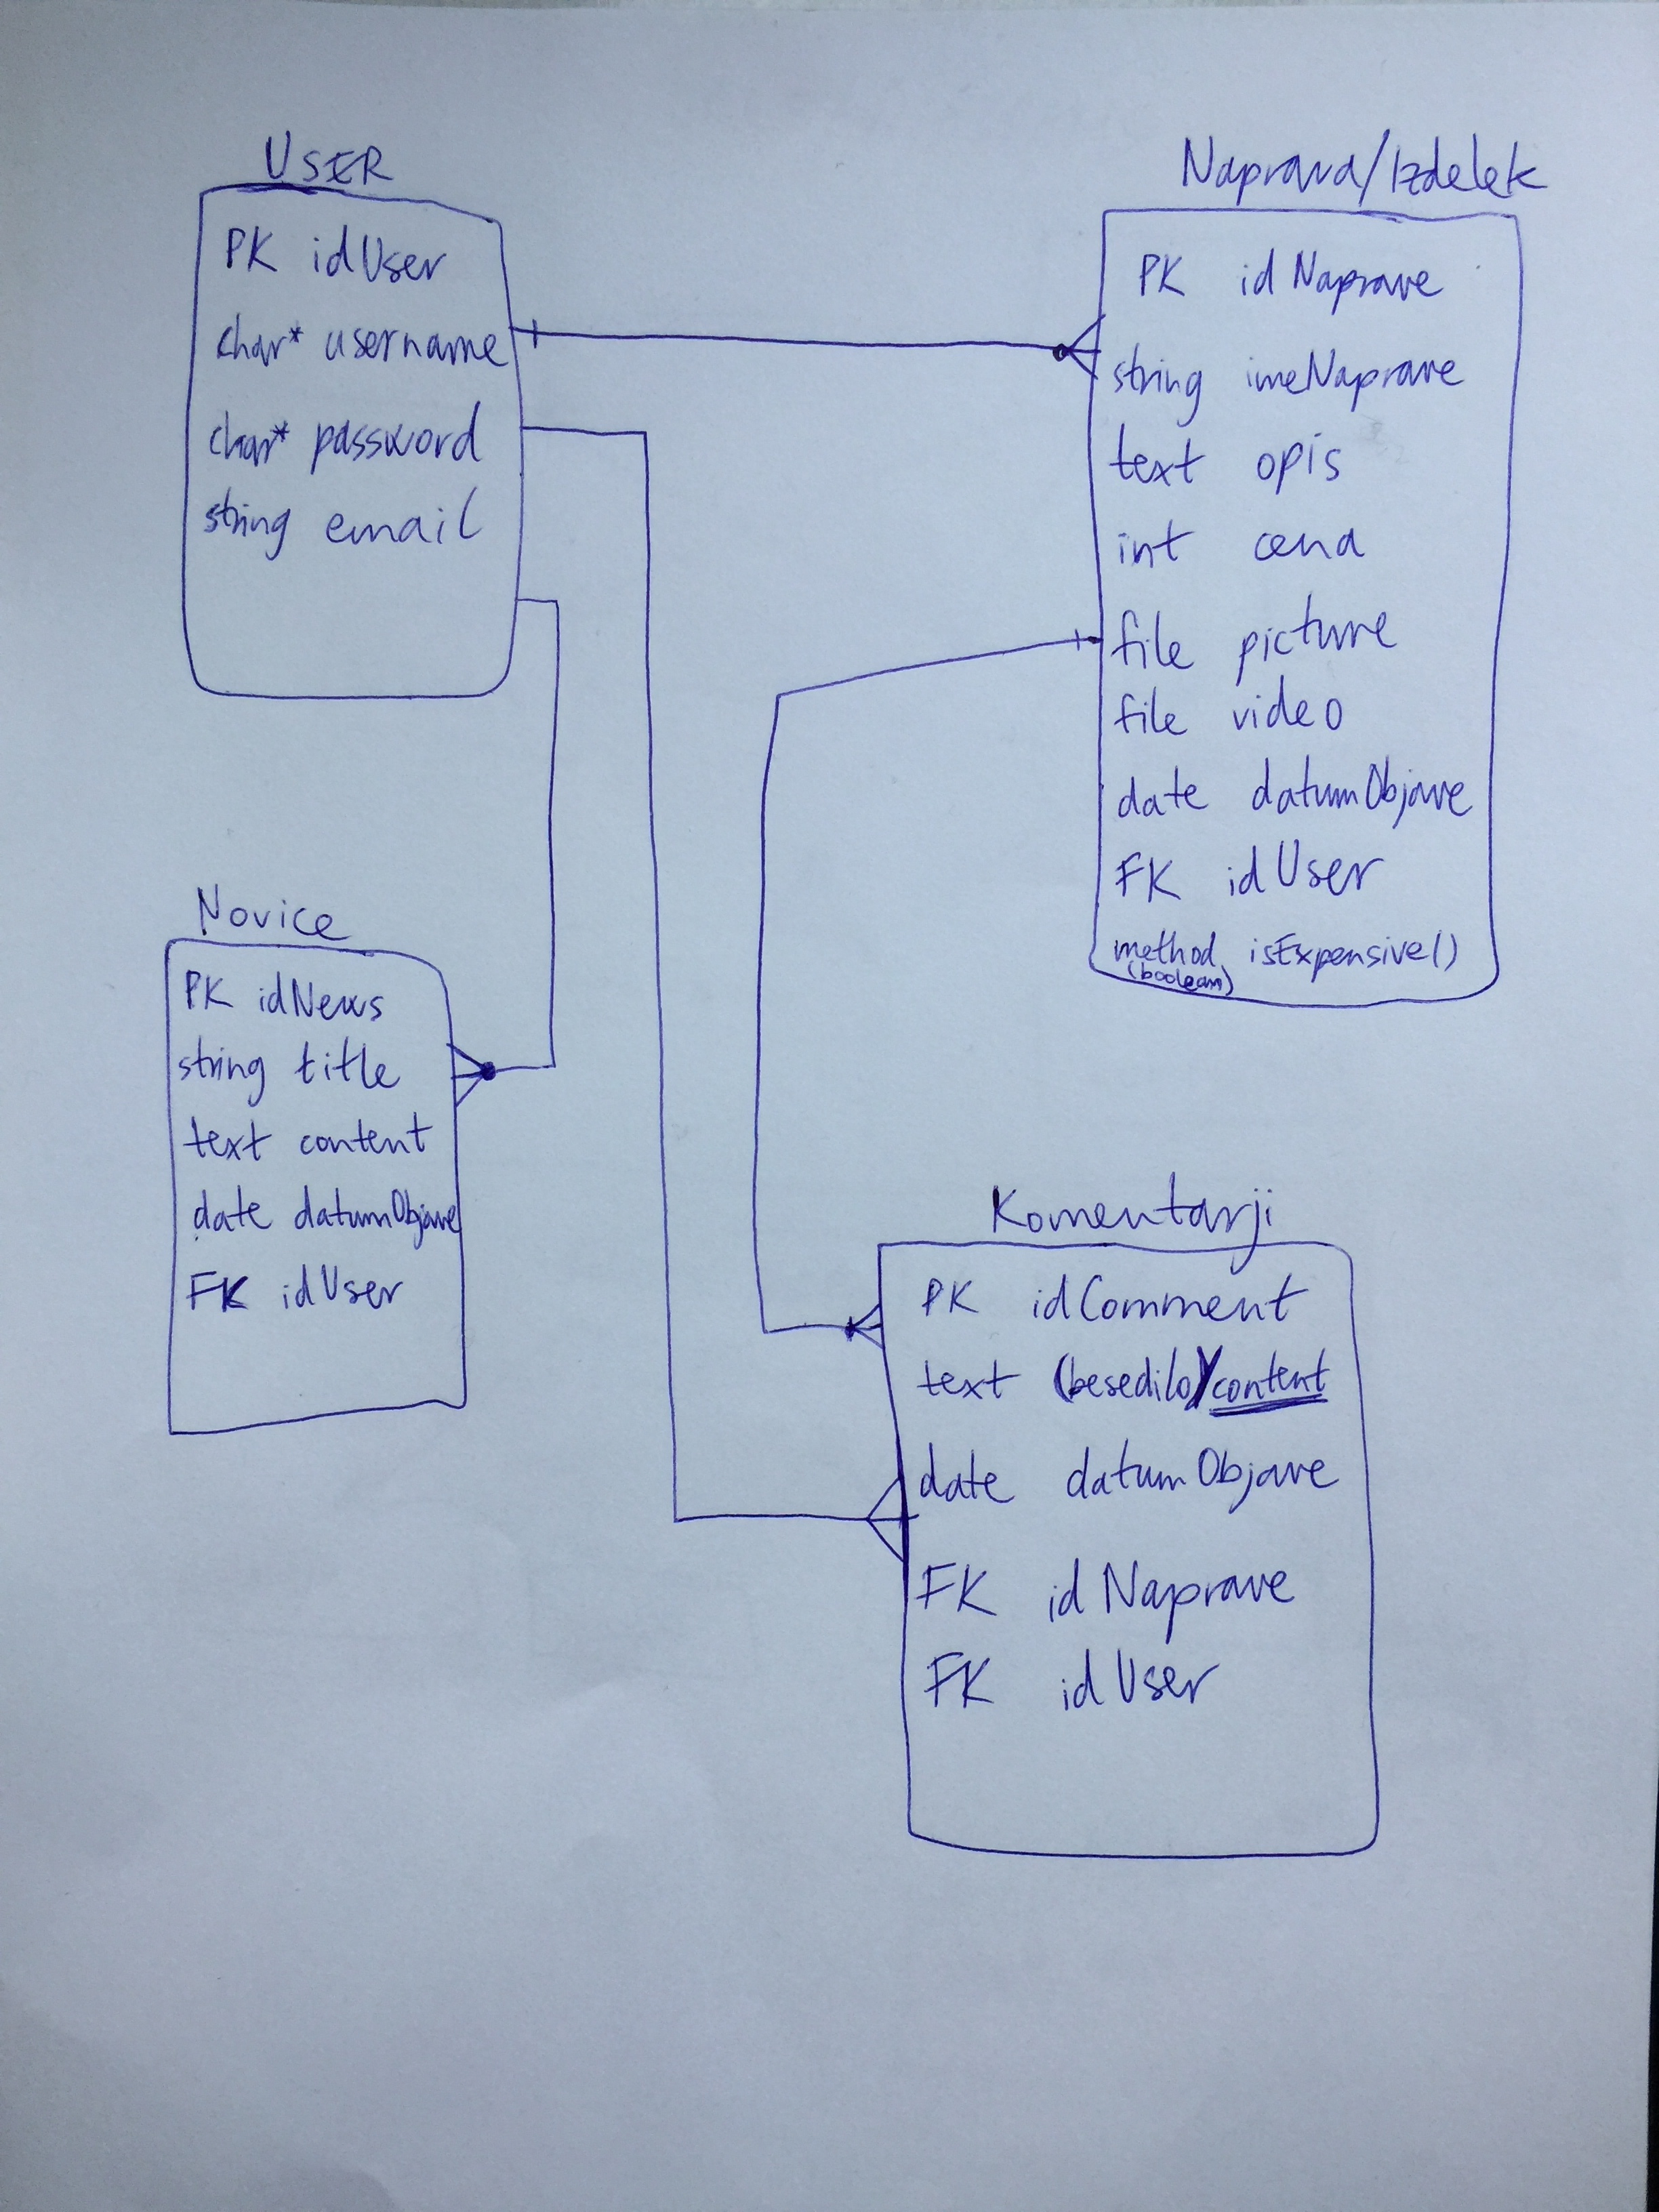 USER
PK idUser
char* username
char* password
string email
Naprava/Izdelek
PK idNaprave
string imeNaprave
text opis
int cena
file picture
file video
date datumObjave
FK idUser
method isExpensive()
(boolean)
Novice
PK idNews
string title
text content
date datumObjave
FK idUser
Komentarji
PK idComment
text (besedilo) content
date datumObjave
FK idNaprave
FK idUser